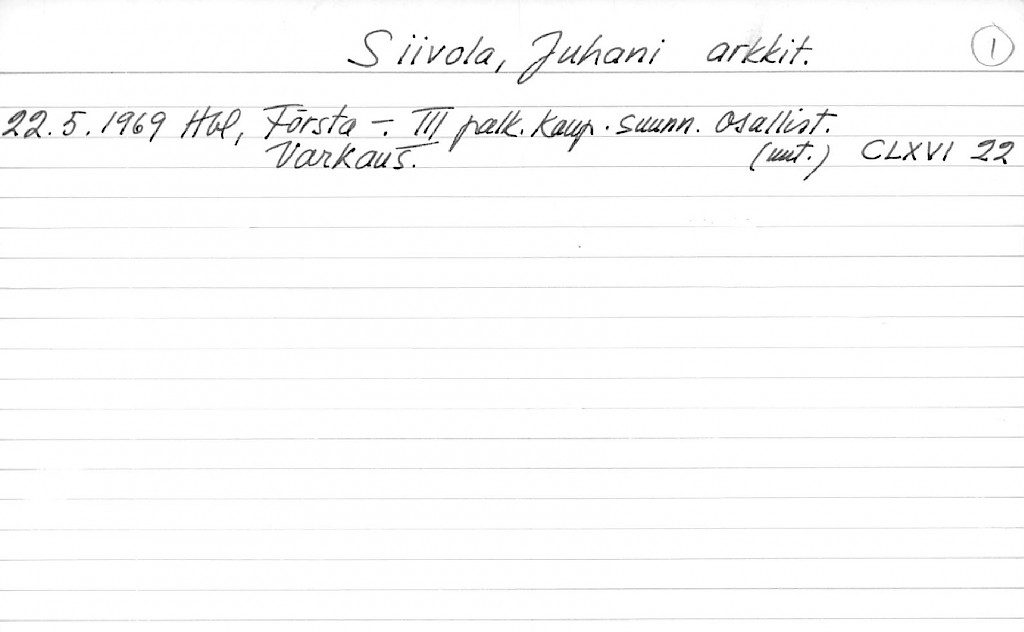 Siivola, Juhani arkkit. 1
22.5.1969 Hbl, Första -. III palk. kaup. suunn. osallist.
Varkaus. (uut.) CLXVI 22